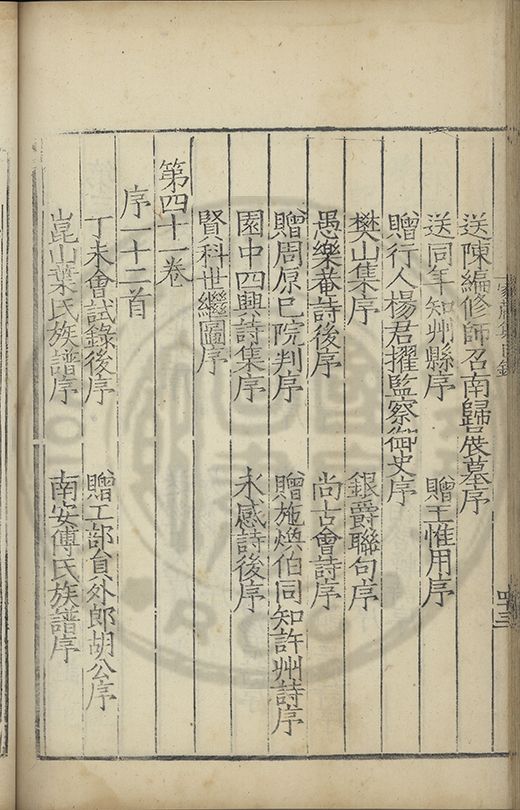 送陳編修師召南歸展墓序
送同年知州縣序　贈王惟用序
贈行人楊君擢監察御史序
樊山集序　銀爵聯句序
愚樂菴詩後序　尚古會詩序
贈周原巳院判序　贈施煥伯同知許州詩序
園中四興詩集序　永感詩後序
賢科世繼圖序
第四十一卷
序一十二首
丁未會試錄後序　贈工部員外郎胡公序
崑山葉氏族譜序　南安傅氏族譜序